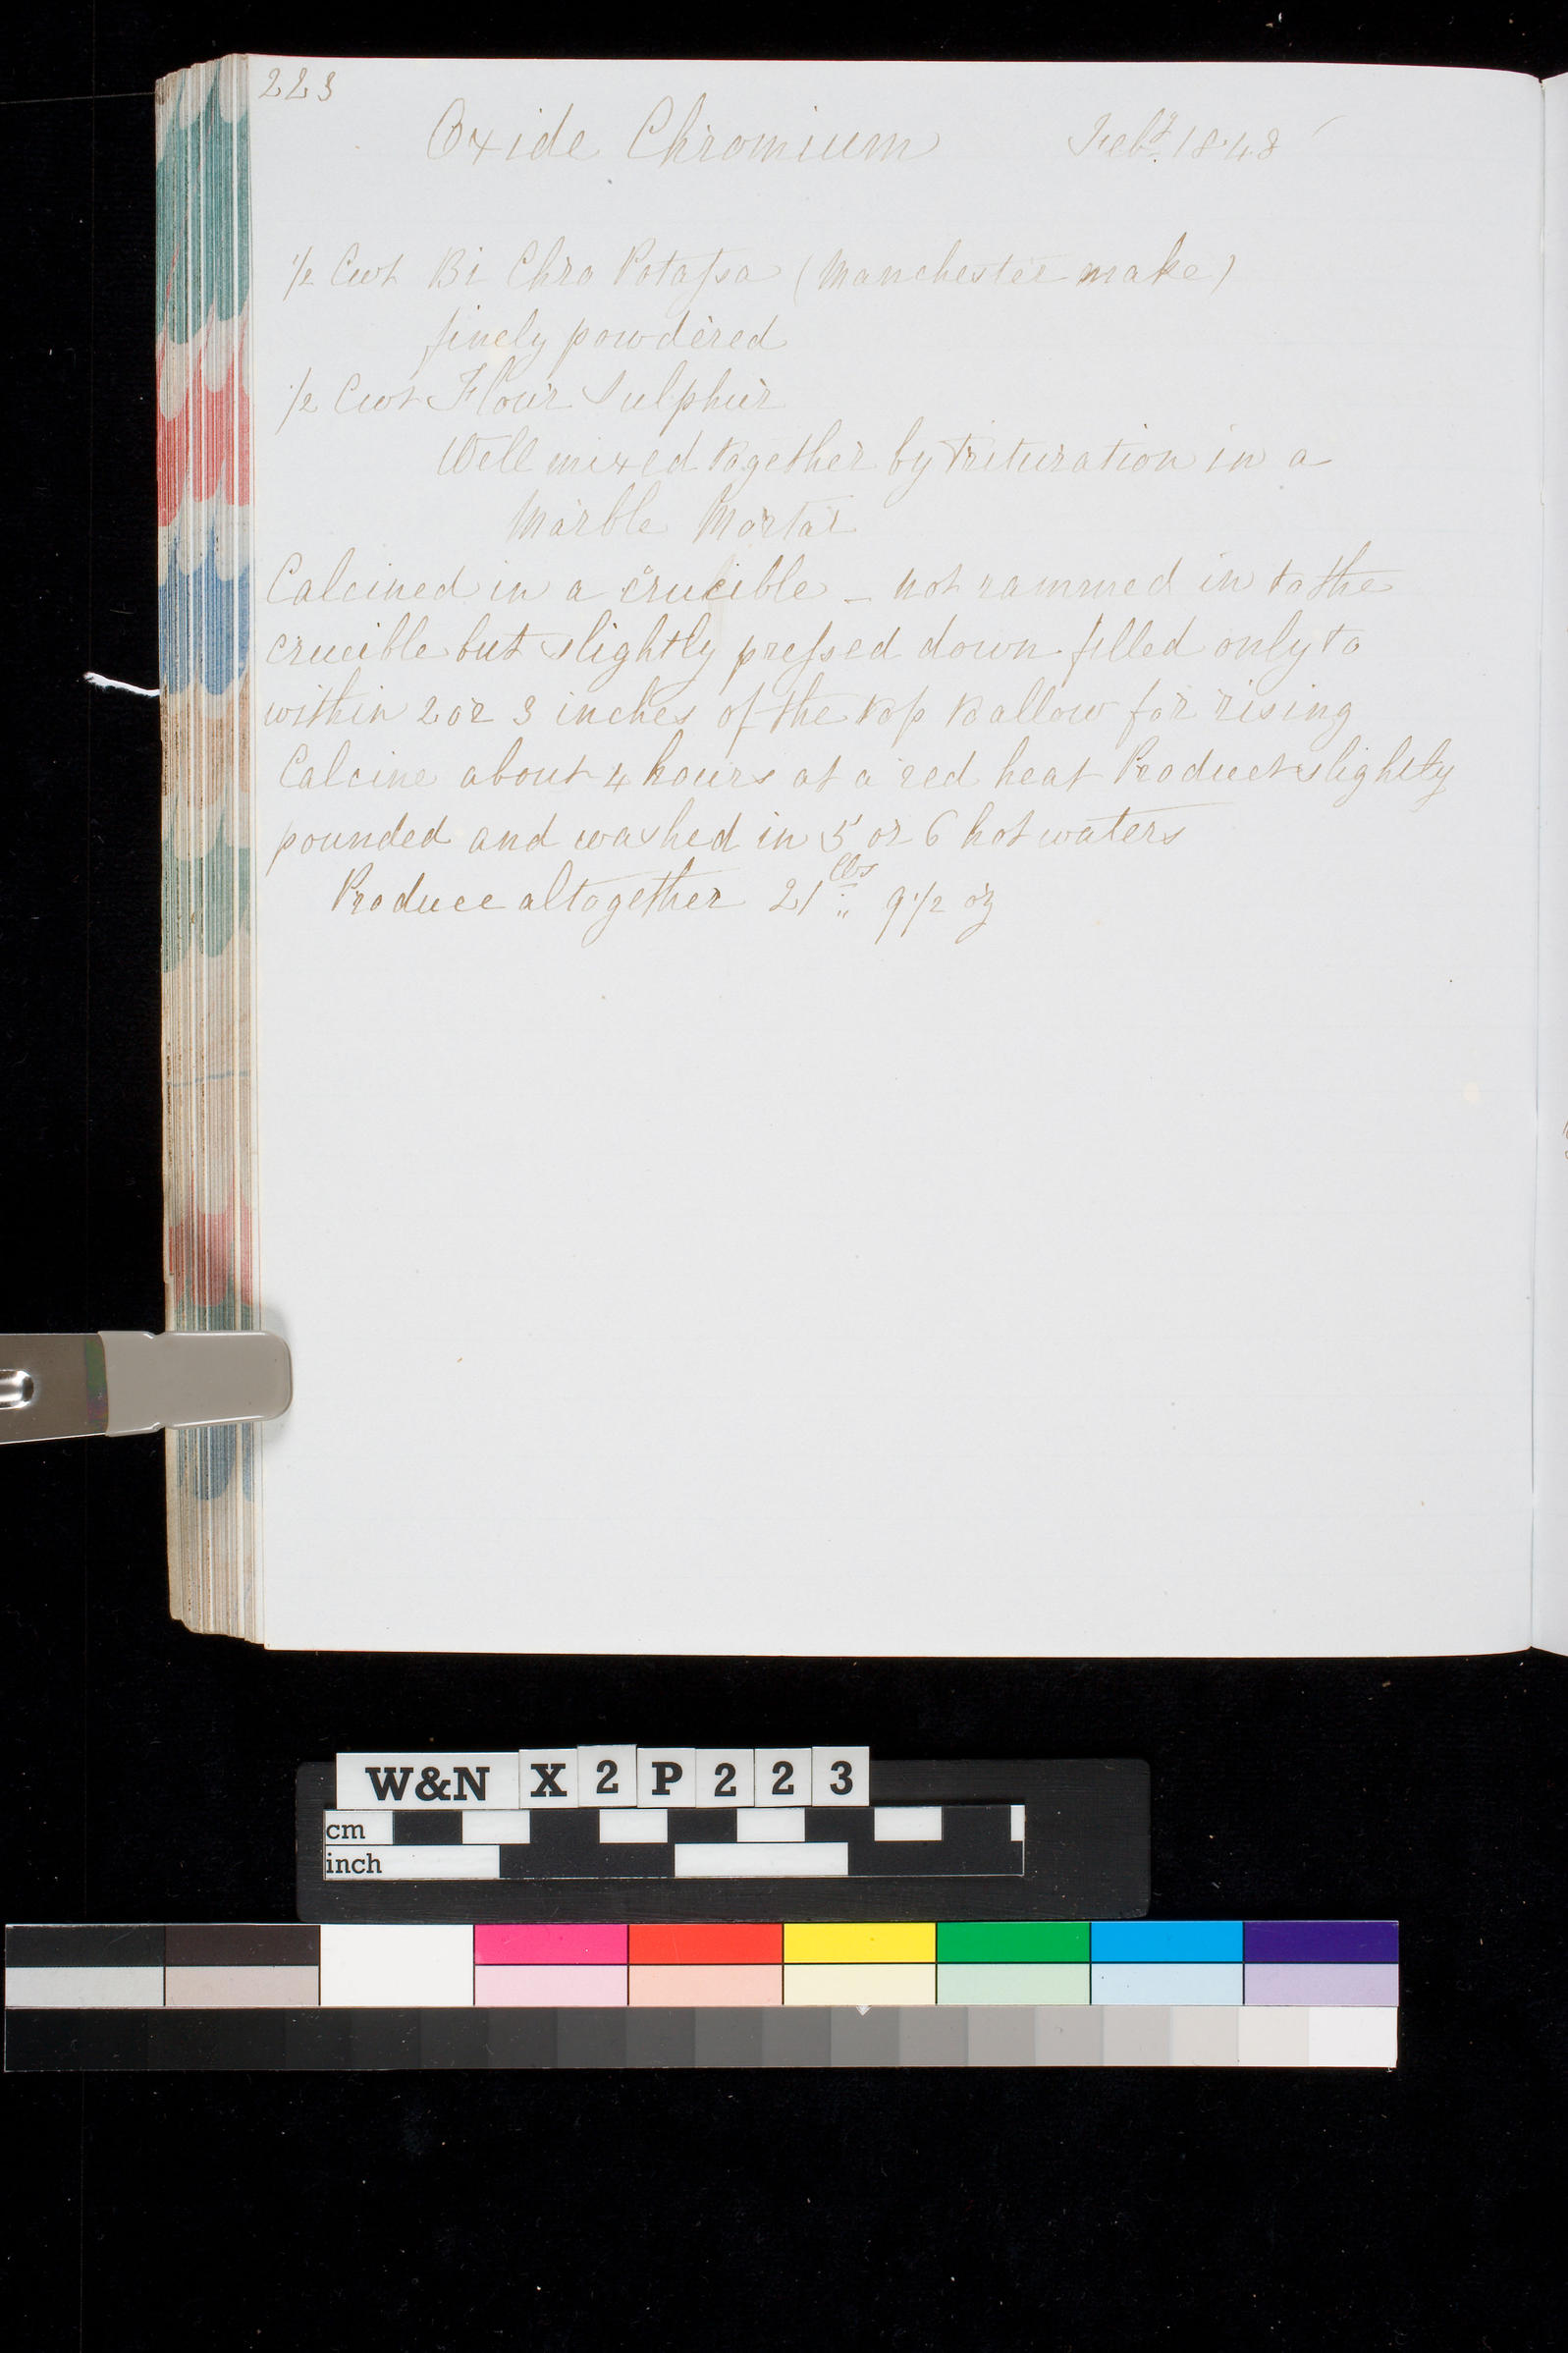 223
Oxide Chromium Feby. 1848
1/2 Cwt Bi Chro Potaſsa (Manchester make)
finely powdered
1/2 Cwt Flour Sulphur
Well mixed together by trituration in a
Marble Mortar
Calcined in a crucible – not rammed in to the
crucible but slightly preſsed down filled only to
within 2 or 3 inches of the top to allow for rising
Calcine about 4 hours at a red heat Product slightly
pounded and washed in 5 or 6 hot waters
Produce altogether 21 lbs „ 9 1/2 oz
W&N X2P223
cm
inch